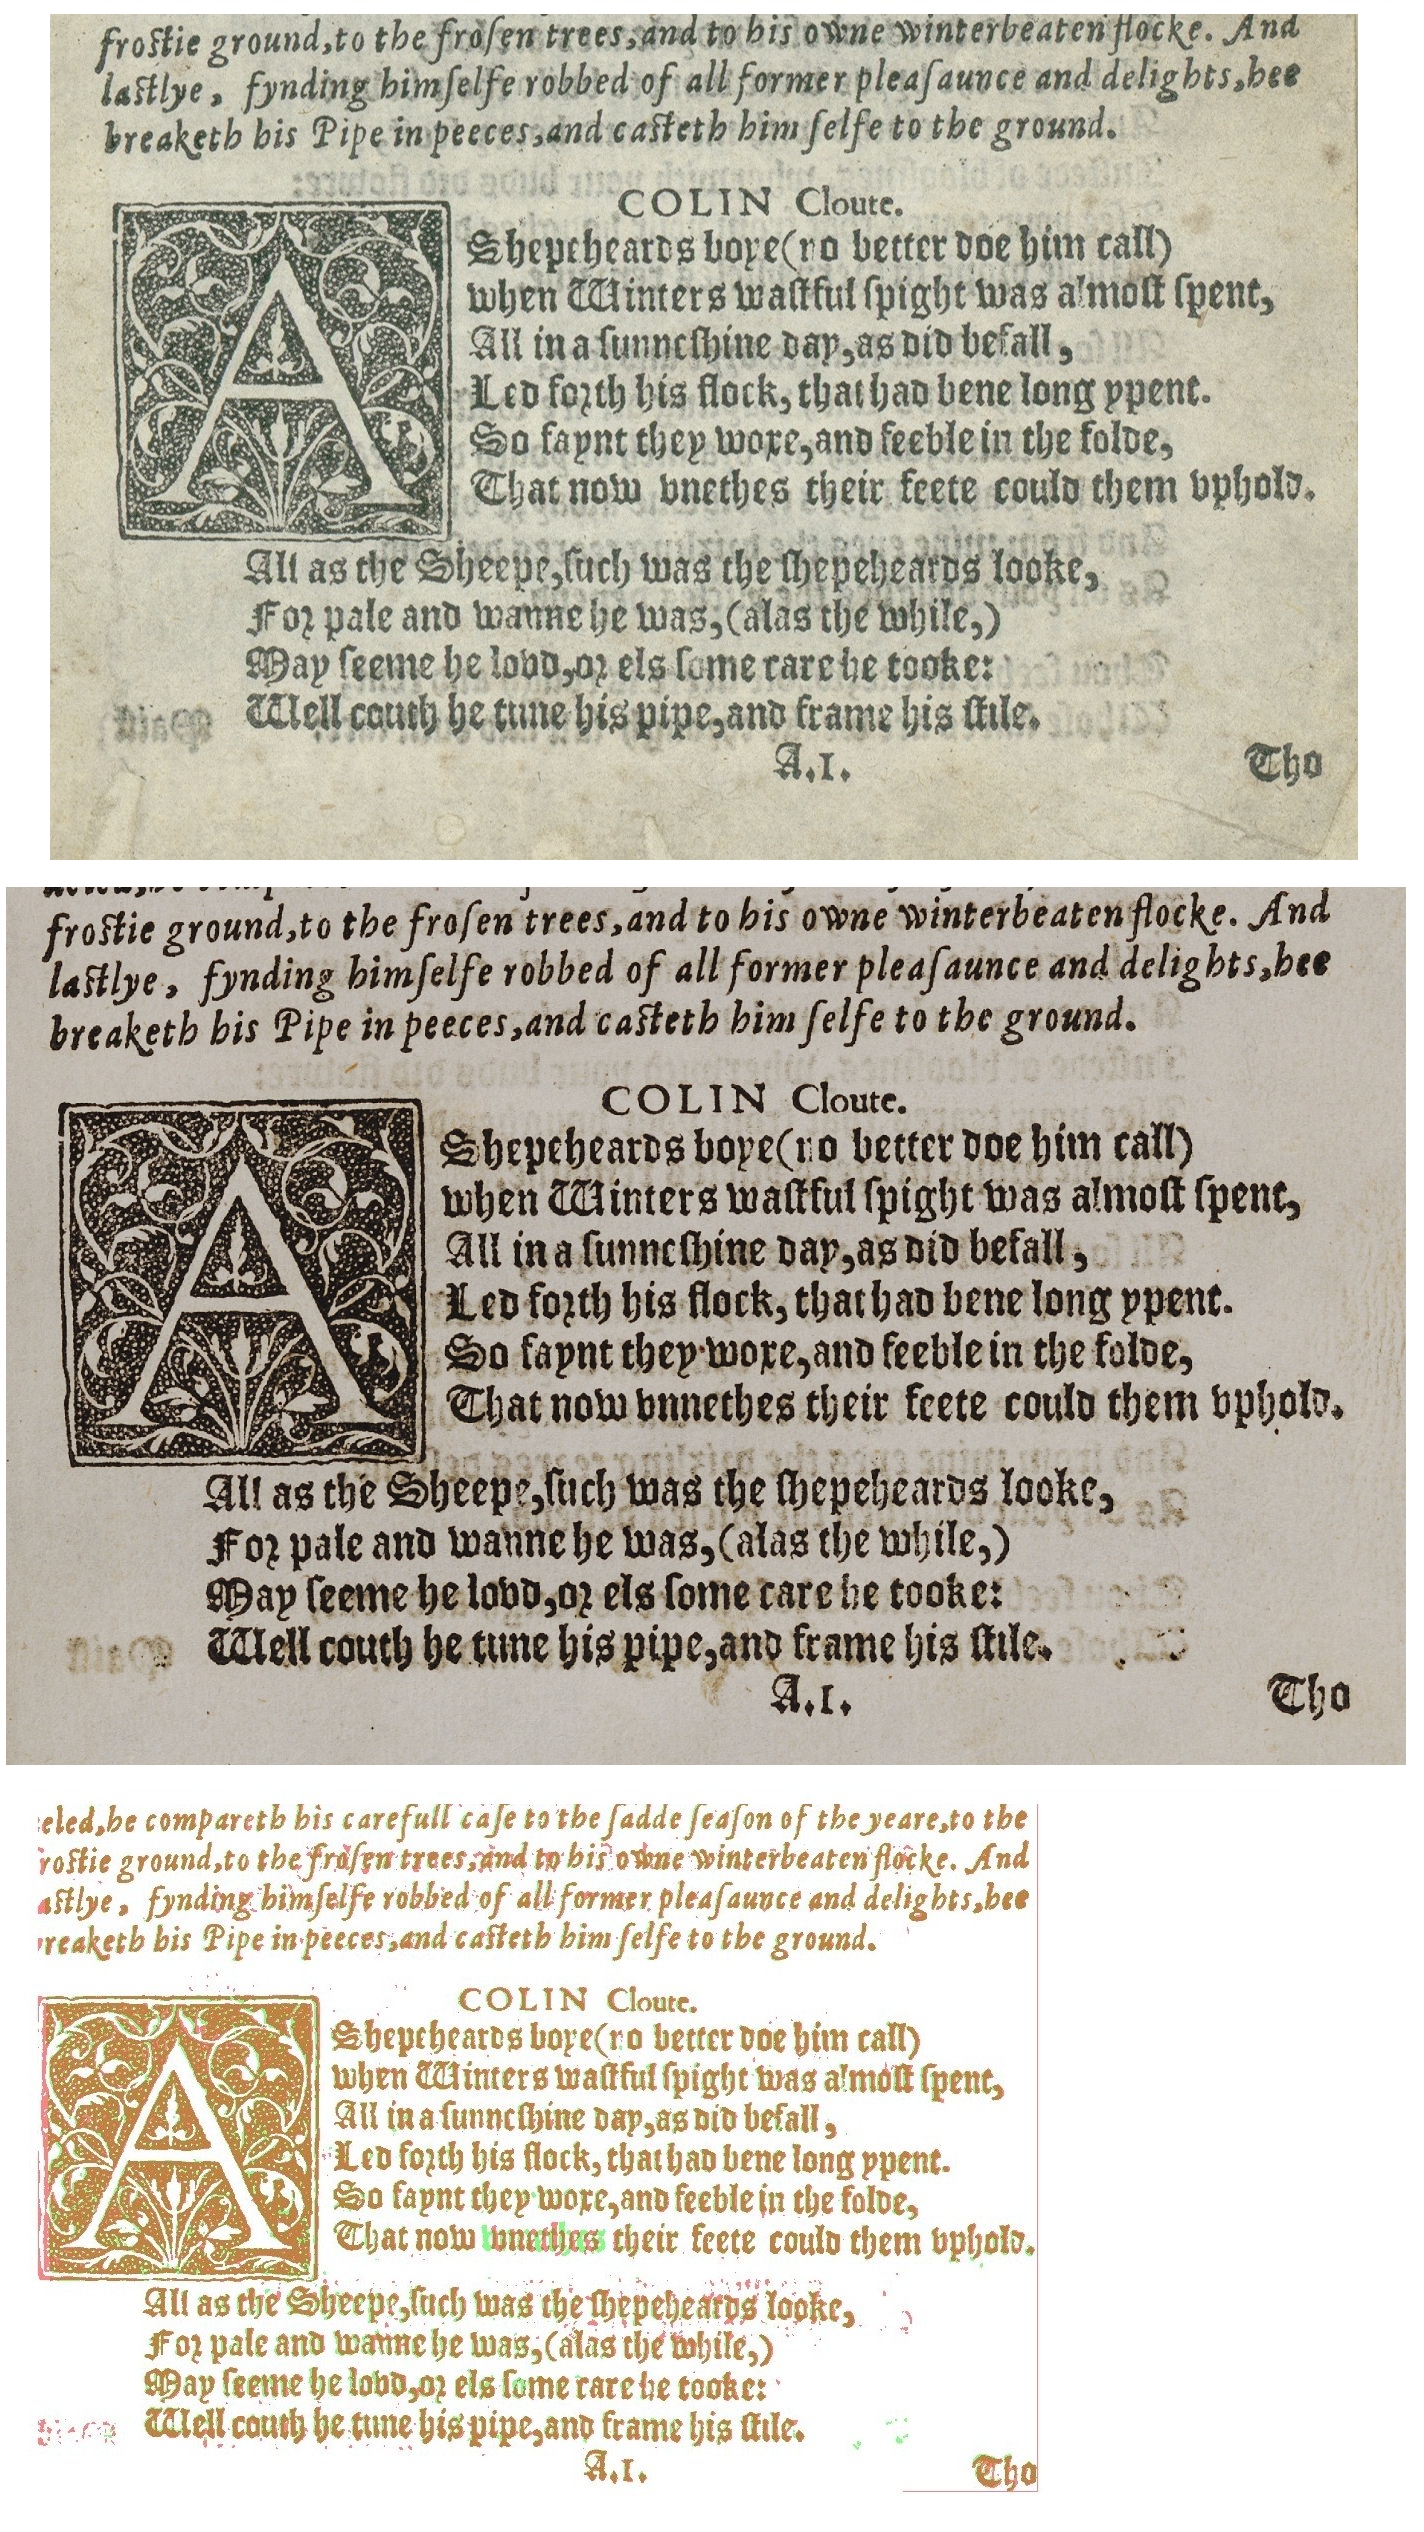 froſtie ground,to the froſen trees,and to his owne winterbeaten flocke. And
laſtlye, fynding himſelfe robbed of all former pleaſaunce and delights,hee
breaketh his Pipe in peeces,and caſteth him ſelfe to the ground.
COLIN Cloute.
A Shepeheards boye(no better doe him call)
when Winters waſtful ſpight was almoſt ſpent,
All in a ſunneſhine day,as did befall,
Led foꝛth his flock, that had bene long ypent.
So faynt they woxe,and feeble in the folde,
That now vnethes their feete could them vphold.
All as the Sheepe,ſuch was the ſhepeheards looke,
Foꝛ pale and wanne he was,(alas the while,)
May ſeeme he lovd,oꝛ els ſome care he tooke:
Well couth he tune his pipe,and frame his ſtile.
A.I.
Tho
froſtie ground,to the froſen trees,and to his owne winterbeaten flocke. And
laſtlye, fynding himſelfe robbed of all former pleaſaunce and delights,hee
breaketh his Pipe in peeces,and caſteth him ſelfe to the ground.
COLIN Cloute.
A Shepeheards boye(no better doe him call)
when Winters waſtful ſpight was almoſt ſpent,
All in a ſunneſhine day,as did befall,
Led foꝛth his flock, that had bene long ypent.
So faynt they woxe,and feeble in the folde,
That now vnnethes their feete could them vphold.
All as the Sheepe,ſuch was the ſhepeheards looke,
Foꝛ pale and wanne he was,(alas the while,)
May ſeeme he lovd,oꝛ els ſome care he tooke:
Well couth he tune his pipe,and frame his ſtile.
A.I.
Tho
eled,he compareth his carefull caſe to the ſadde ſeaſon of the yeare,to the
roſtie ground,to the froſen trees,and to his owne winterbeaten flocke. And
aſtlye, fynding himſelfe robbed of all former pleaſaunce and delights,hee
reaketh his Pipe in peeces,and caſteth him ſelfe to the ground.
COLIN Cloute.
A Shepeheards boye(no better doe him call)
when Winters waſtful ſpight was almoſt ſpent,
All in a ſunneſhine day,as did befall,
Led foꝛth his flock, that had bene long ypent.
So faynt they woxe,and feeble in the folde,
That now vnethes their feete could them vphold.
All as the Sheepe,ſuch was the ſhepeheards looke,
Foꝛ pale and wanne he was,(alas the while,)
May ſeeme he lovd,oꝛ els ſome care he tooke:
Well couth he tune his pipe,and frame his ſtile.
A.I.
Tho